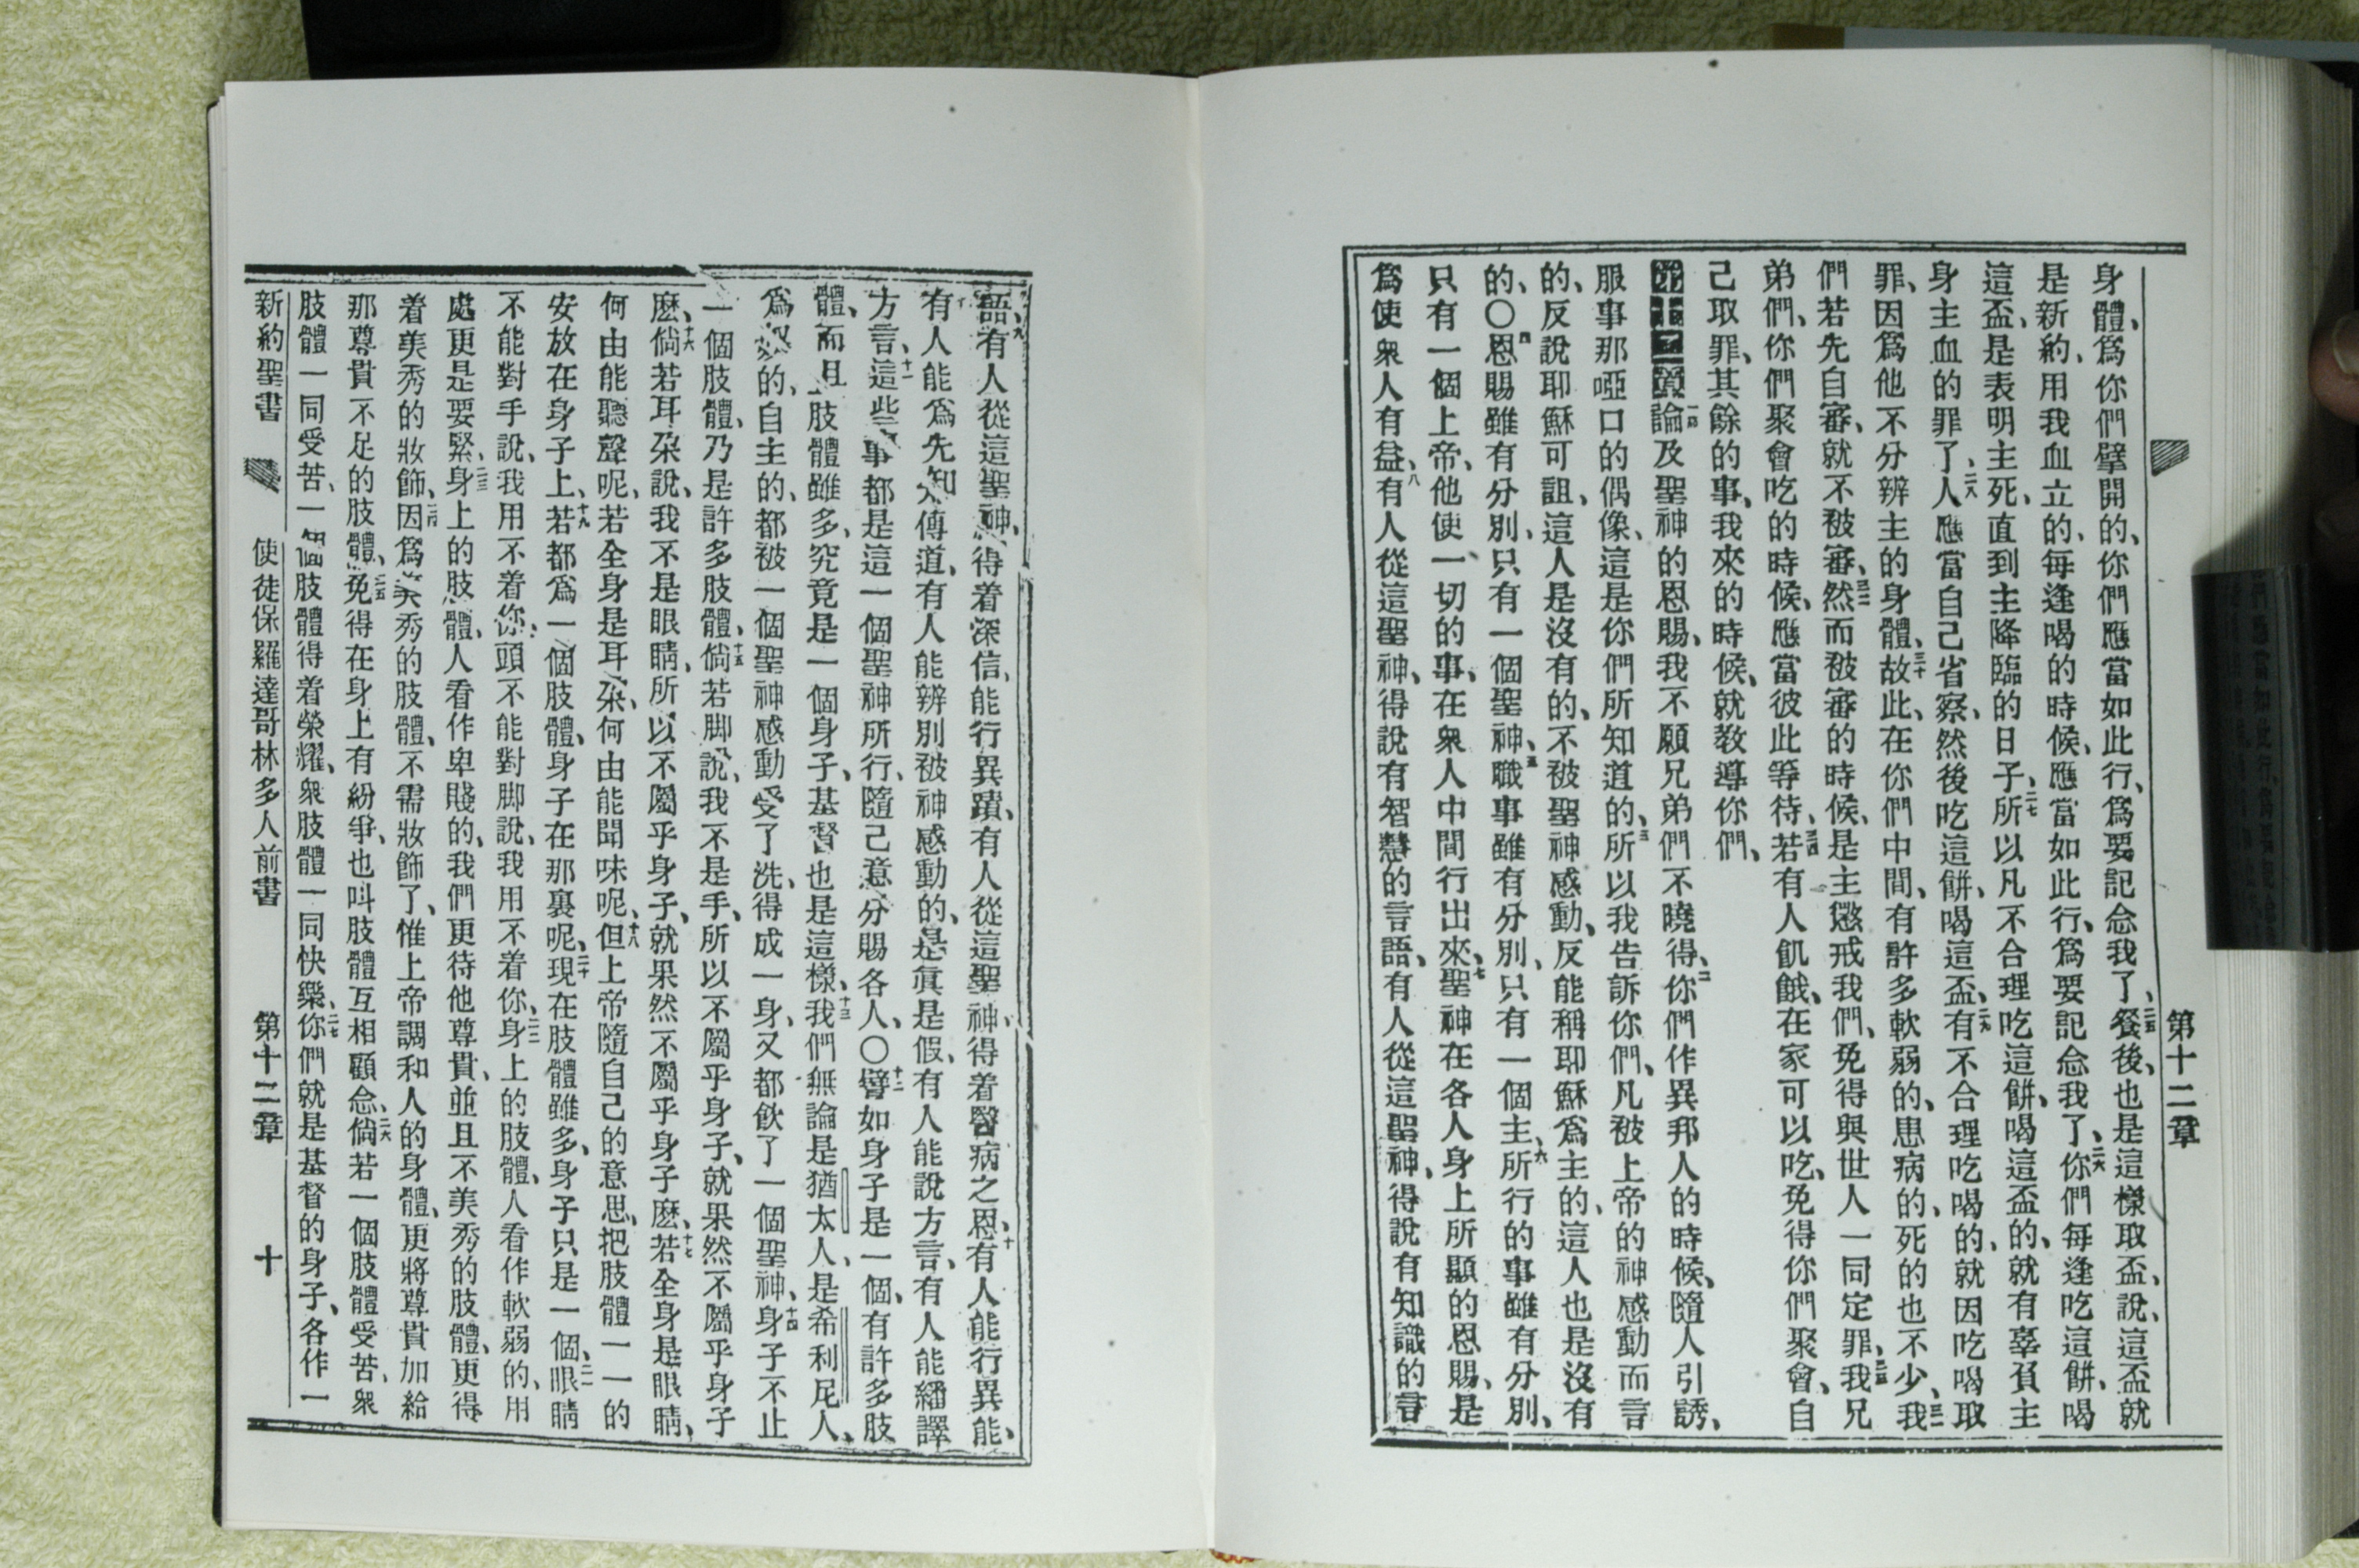 第十二章
身體、爲你們擘開的、你們應當如此行、爲要記念我了、二五餐後、也是這樣取盃、說、這盃就
是新約、用我血立的、每逢喝的時候、應當如此行、爲要記念我了、二六你們每逢吃這餅、喝
這盃、是表明主死、直到主降臨的日子、二七所以凡不合理吃這餅、喝這盃的、就有辜負主
身主血的罪了、二八人應當自己省察、然後吃這餅、喝這盃、二九有不合理吃喝的、就因吃喝取
罪、因爲他不分辨主的身體、三十故此、在你們中間、有許多軟弱的、患病的、死的也不少、三一我
們若先自審、就不被審、三二然而被審的時候、是主懲戒我們、免得與世人一同定罪、三三我兄
弟們、你們聚會吃的時候、應當彼此等待、三四若有人飢餓、在家可以吃、免得你們聚會、自
己取罪、其餘的事、我來的時候、就教導你們、
第十二章論及聖神的恩賜、我不願兄弟們不曉得、二你們作異邦人的時候、隨人引誘、
服事那啞口的偶像、這是你們所知道的、三所以我告訴你們、凡被上帝的神感動而言
的、反說耶穌可詛、這人是沒有的、不被聖神感動、反能稱耶穌爲主的、這人也是沒有
的、〇四恩賜雖有分別、只有一個聖神、五職事雖有分別、只有一個主、六所行的事雖有分別、
只有一個上帝、他使一切的事、在衆人中間行出來、七聖神在各人身上所顯的恩賜、是
爲使衆人有益、八有人從這聖神、得說有智慧的言語、有人從這聖神、得說有知識的言
語、九有人從這聖神、得着深信、能行異蹟、有人從這聖神、得着醫病之恩、十有人能行異能、
有人能爲先知傳道、有人能辨別被神感動的、是眞是假、有人能說方言、有人能繙譯
方言、十一這些事都是這一個聖神所行、隨己意分賜各人、〇十二譬如身子是一個、有許多肢
體、而且肢體雖多、究竟是一個身子、基督也是這樣、十三我們無論是猶太人、是希利尼人、
爲奴的、自主的、都被一個聖神感動受了洗、得成一身、又都飲了一個聖神、十四身子不止
一個肢體、乃是許多肢體、十五倘若脚說、我不是手、所以不屬乎身子、就果然不屬乎身子
麽、十六倘若耳朶說、我不是眼睛、所以不屬乎身子、就果然不屬乎身子麽、十七若全身是眼睛、
何由能聽聲呢、若全身是耳朶、何由能聞味呢、十八但上帝隨自己的意思、把肢體一一的
安放在身子上、十九若都爲一個肢體、身子在那裏呢、二十現在肢體雖多、身子只是一個、二一眼睛
不能對手說、我用不着你、頭不能對脚說、我用不着你、二二身上的肢體、人看作軟弱的、用
處更是要緊、二三身上的肢體、人看作卑賤的、我們更待他尊貴、並且不美秀的肢體、更得
着美秀的妝飾、二四因爲美秀的肢體、不需妝飾了、惟上帝調和人的身體、更將尊貴加給
那尊貴不足的肢體、二五免得在身上有紛爭、也叫肢體互相顧念、二六倘若一個肢體受苦、衆
肢體一同受苦、一個肢體得着榮耀、衆肢體一同快樂、二七你們就是基督的身子、各作一
新約聖書 使徒保羅達哥林多人前書 第十二章 十